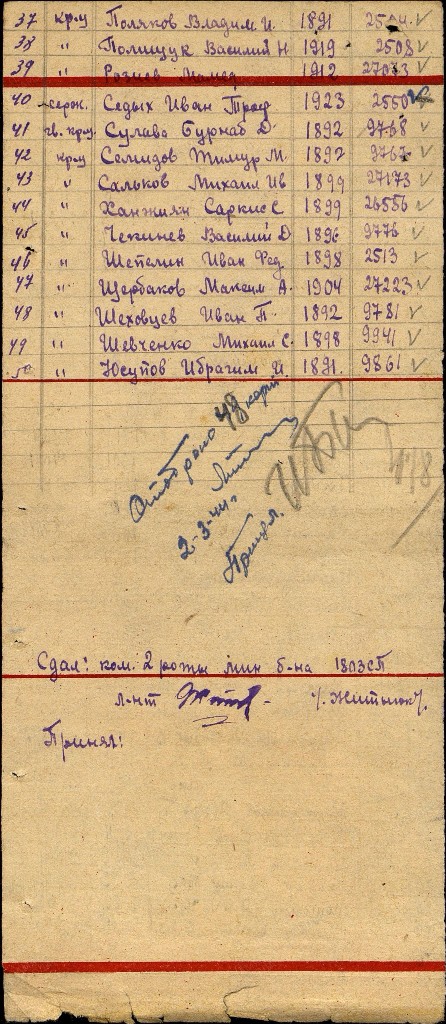 37 кр-ц Поляков Владим И. 1891
38 " Полищук Василий Н 1919 2508 ✓
39 " Розиев Мамед 1912 27033 ✓
40 серж. Седых Иван Проф 1923 2550
41 гв. кр-ц Сулава Бурнаб Д. 1892 9768 ✓
42 кр-ц Селидов Тимур М. 1892 9767 ✓
43 " Сальков Михаил Ив 1899 27173 ✓
44 " Ханжиян Саркис С 1899 26556 ✓
45 " Чекинев Василий Д 1896 9776 ✓
46 " Шепелин Иван Фед 1898 2513 ✓
47 " Щербаков Максим А. 1904 27223 ✓
48 " Шеховцев Иван П. 1892 9781 ✓
49 " Шевченко Михаил С. 1898 9941 ✓
50 " Юсупов Ибрагим И. 1891. 9861 ✓
Отобрано 48 карт
2-3-44г.
Сдал: ком. 2 роты мин б-на 180зсп
л-нт /. Житнюк/.
Принял: